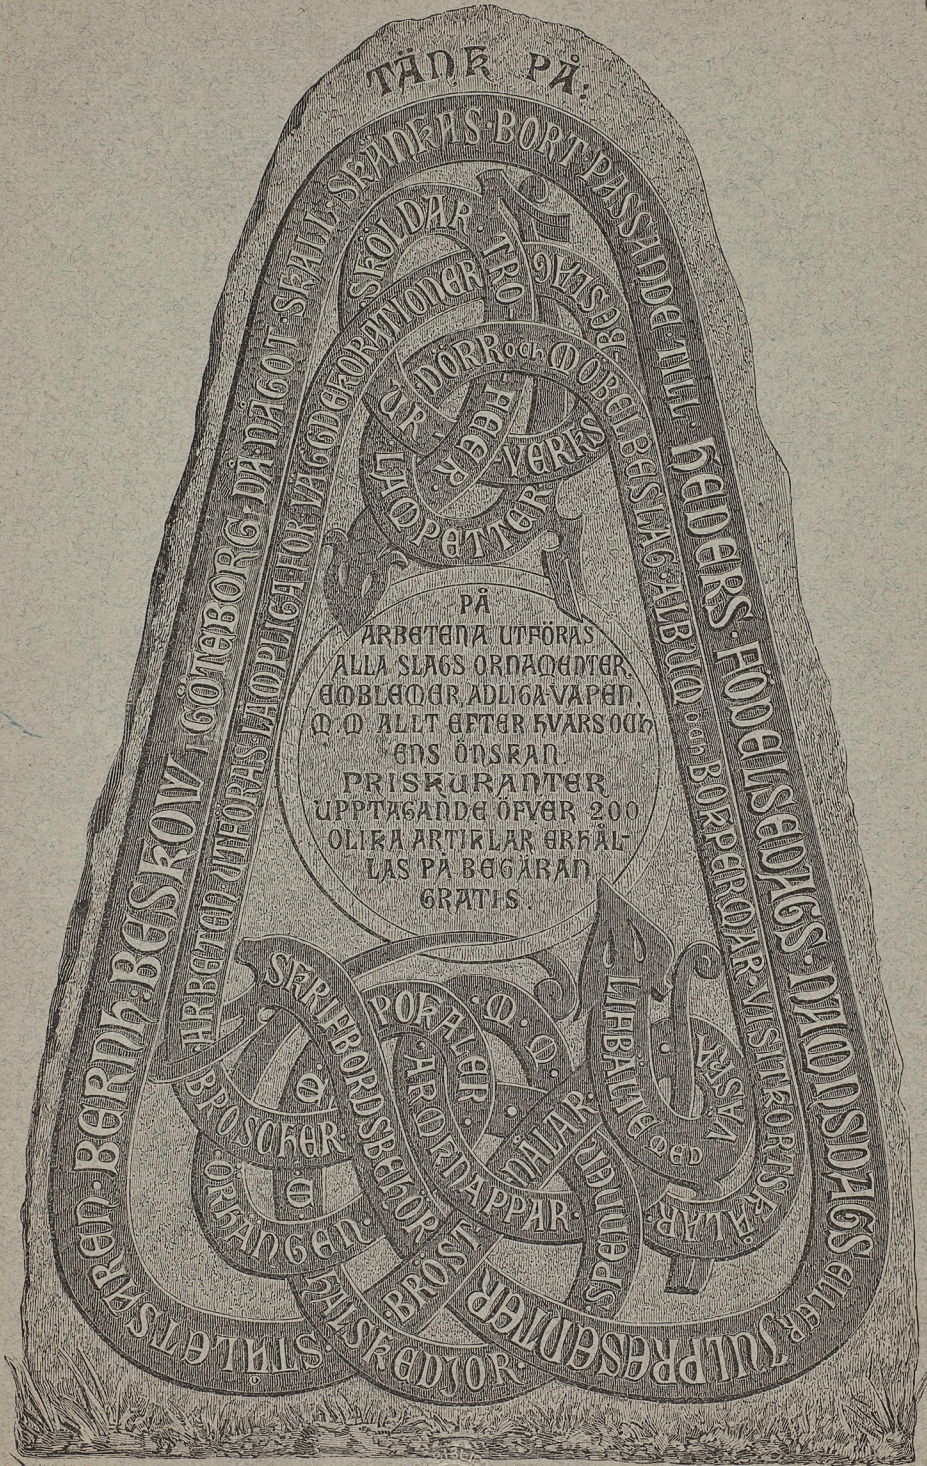 TÄNK PÅ:
STÅLETSAREN · BERNH. BESKOW i GÖTEBORG · DÅ NÅGOT SKALL · SKÄNKAS · BORT · PASSANDE TILL · HEDERS · FÖDELSEDAGS · NAMNSDAGS ELLER JULPRESENTER
ARBETEN UTFÖRAS LÄMPLIGA FÖR VÄGGDEKORATIONER
SKÖLDAR · TRO-
UR
VERKS-
BESLAG
LAMPETTER
DÖRR och MÖBELBESLAG · ALBUM och BOKPERMAR · VISITKORTSKÅLAR
PÅ
ARBETENA UTFÖRAS
ALLA SLAGS ORNAMENTER,
EMBLEMER, ADLIGA VAPEN,
M.M ALLT EFTER HVARS OCH
ENS ÖNSKAN.
PRISKURANTER
UPPTAGANDE ÖFVER 200
OLIKA ARTIKLAR ERHÅL-
LAS PÅ BEGÄRAN
GRATIS.
SKRIFBORDSBEHÖR
POKALER · M · M ·
BROSCHER ·
ÖRHÄNGEN ·
HALSKEDJOR ·
BRÖST
NÅLAR
ARMKNAPPAR ·
SPÄNNEN
MED